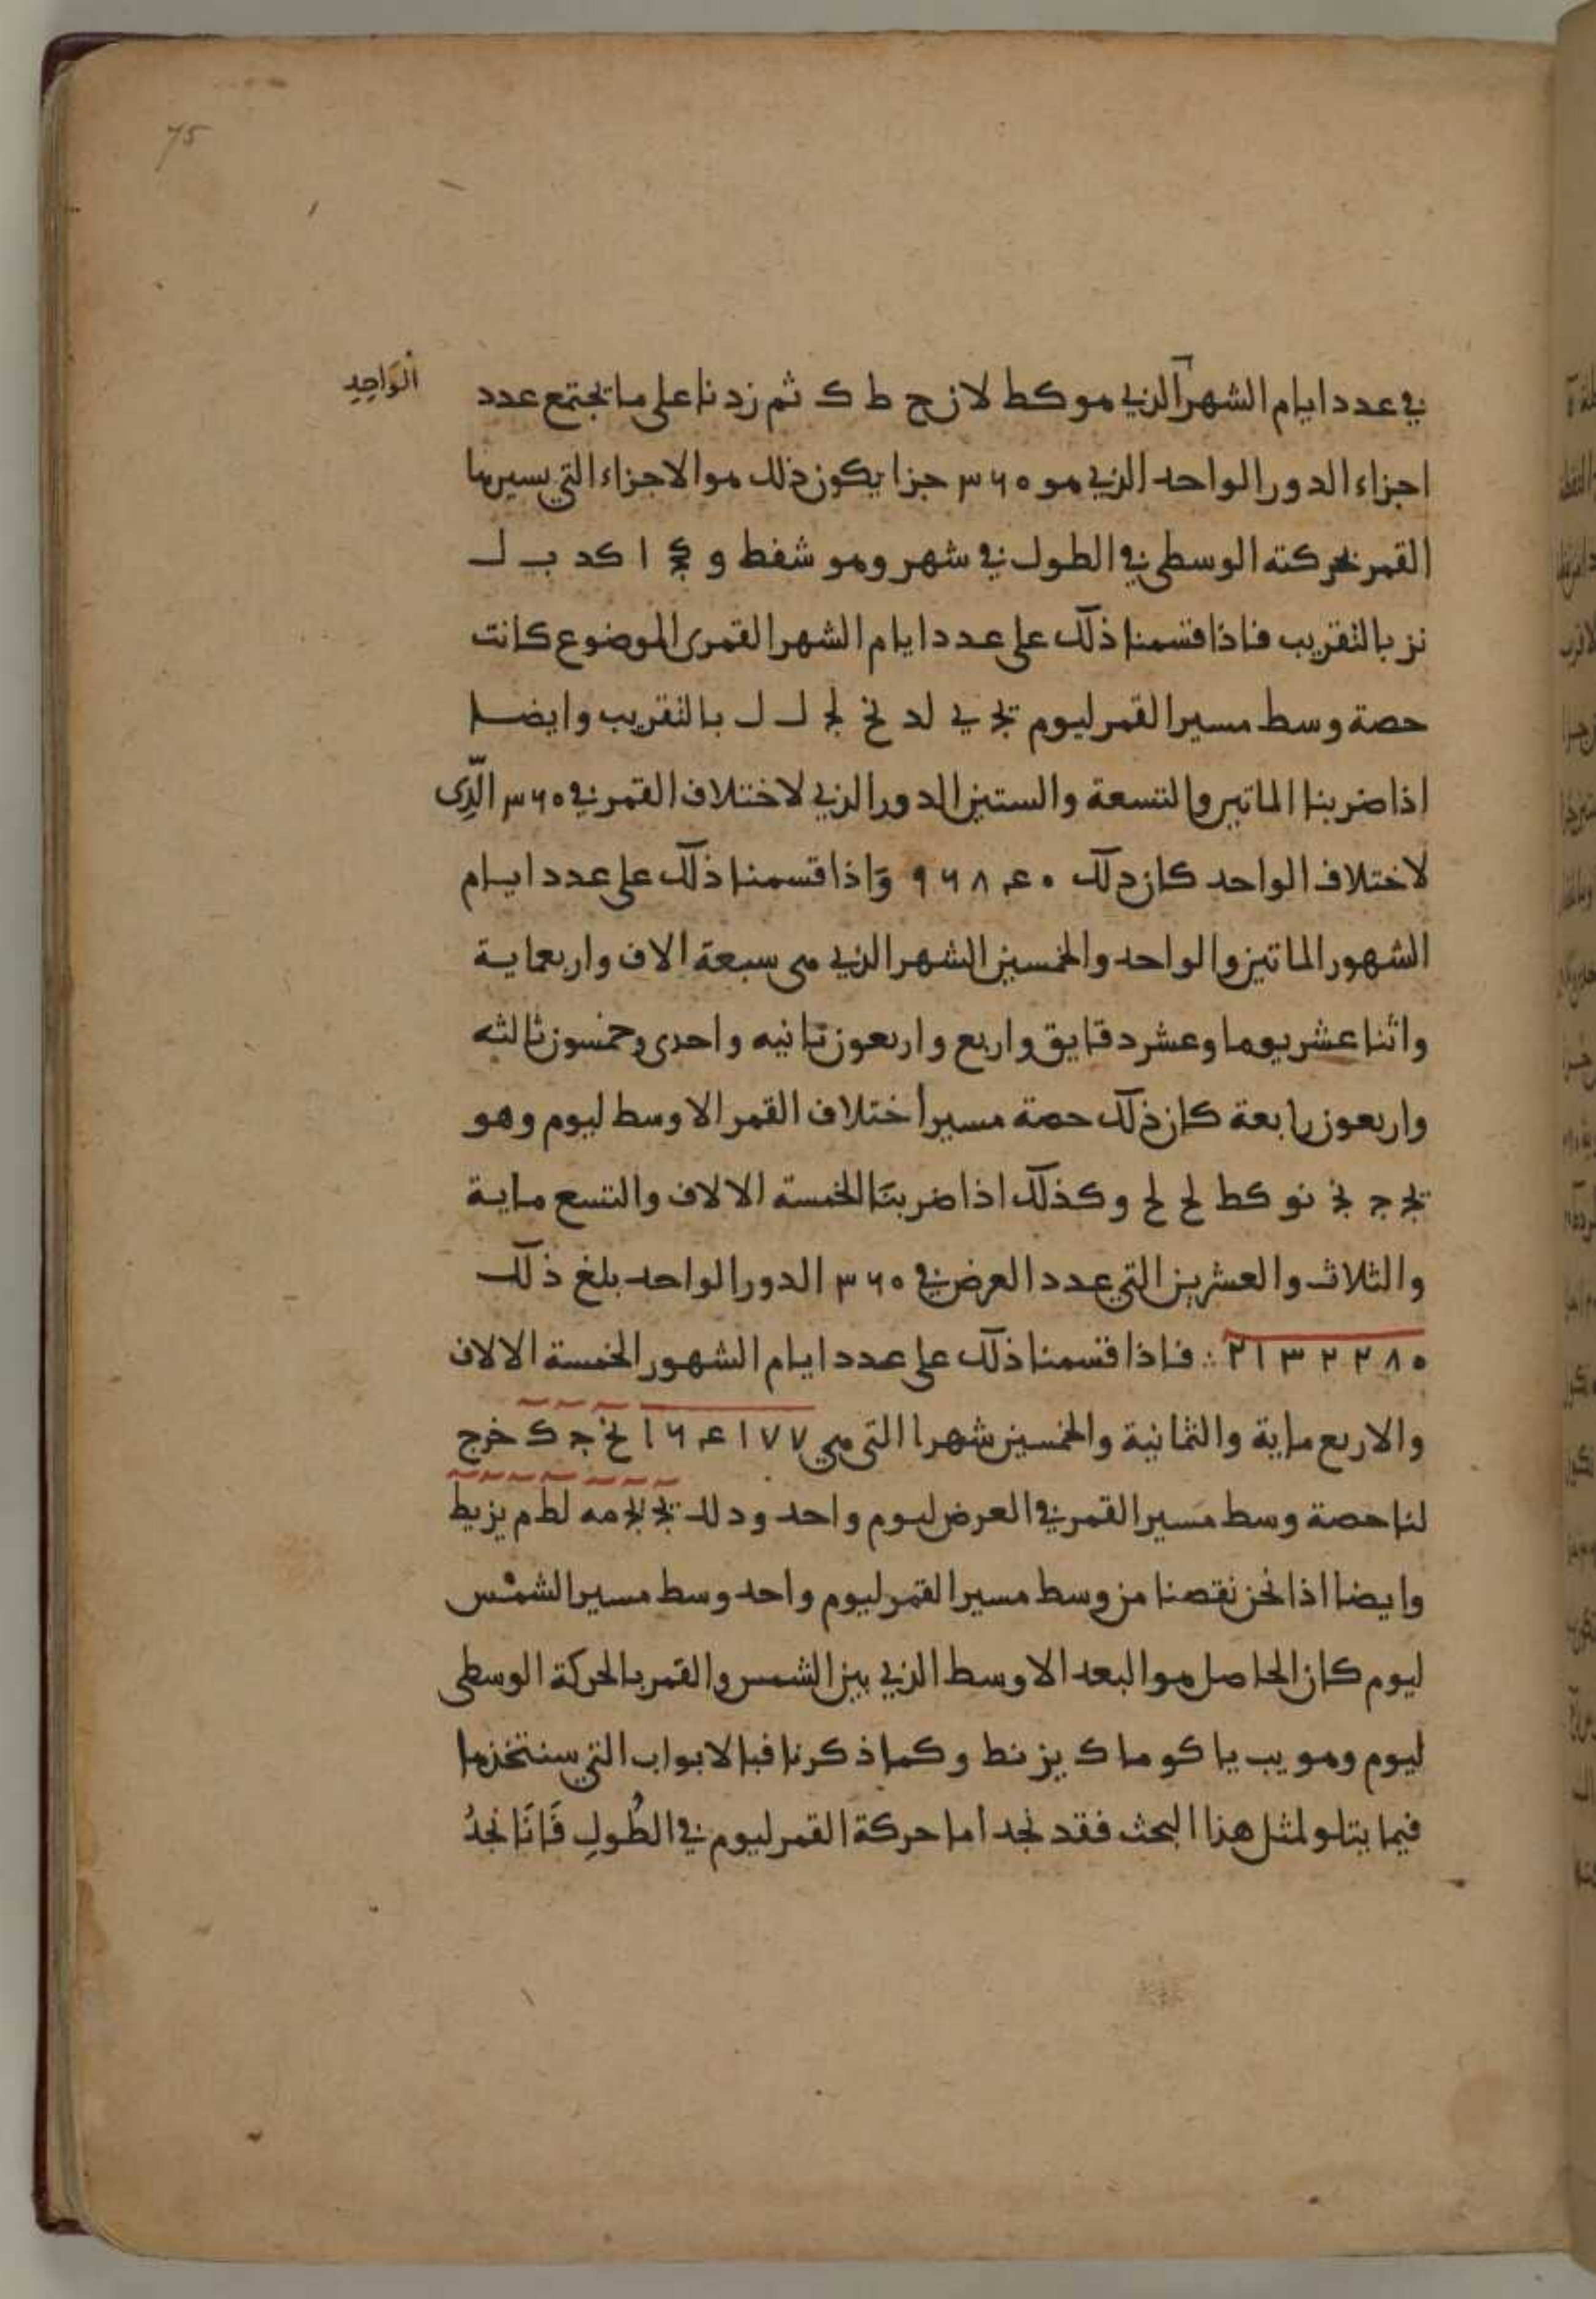 75
الواحِدِ
في عدد ايام الشهر الذي هو كط لا ن ح ط ك ثم زدنا على ما يجتمع عدد
اجزاء الدور الواحد الذي هو ٣٦٠ جزا يكون ذلك هو الاجزاء التي يسيرها
القمر بحركته الوسطى في الطول في شهر وهو شفط و كج ا كد ب ل
نز بالتقريب فاذا قسمنا ذلك على عدد ايام الشهر القمرى الموضوع كانت
حصة وسط مسير القمر ليوم يج ي لد نح لج ل ل بالتقريب وايضا
اذا ضربنا الماتين والتسعة والستين الدور الذي لاختلاف القمر في ٣٦٠ الّذِى
لاختلاف الواحد كان دلك ٩٦٨٤٠ وَاذا قسمنا ذلك على عدد ايام
الشهور الماتين والواحد والخمسين الشهر الذي هى سبعة الاف واربعماية
واثنا عشر يوما وعشر دقايق واربع واربعون ثانيه واحدى وخمسون ثالثه
واربعون رابعة كان ذلك حصة مسير اختلاف القمر الاوسط ليوم وهو
يج ج نج نو كط لح لح وكذلك اذا ضربنَا الخمسة الالاف والتسع ماية
والثلاث والعشرين التي عدد العرض في ٣٦٠ الدور الواحد بلغ ذلك
٢١٣٢٢٨٠ ∴ فاذا قسمنا ذلك على عدد ايام الشهور الخمسة الالاف
والاربع ماية والثمانية والخمسين شهرا التى هي ١٦٤١٧٧ نح ج ك خرج
لنا حصة وسط مسير القمر في العرض ليوم واحد ودلك يج يج مه لط م يز يط
وايضا اذا نحن نقصنا من وسط مسير القمر ليوم واحد وسط مسير الشمْس
ليوم كان الحاصل هو البعد الاوسط الذي بين الشمس والقمر بالحركة الوسطى
ليوم وهو يب يا كو ما ك يز نط وكما ذكرنا فبالابواب التي سنتخذها
فيما يتلو لمثل هذا البحث فقد نجد اما حركة القمر ليوم في الطُولِ فَانَا نجدُ